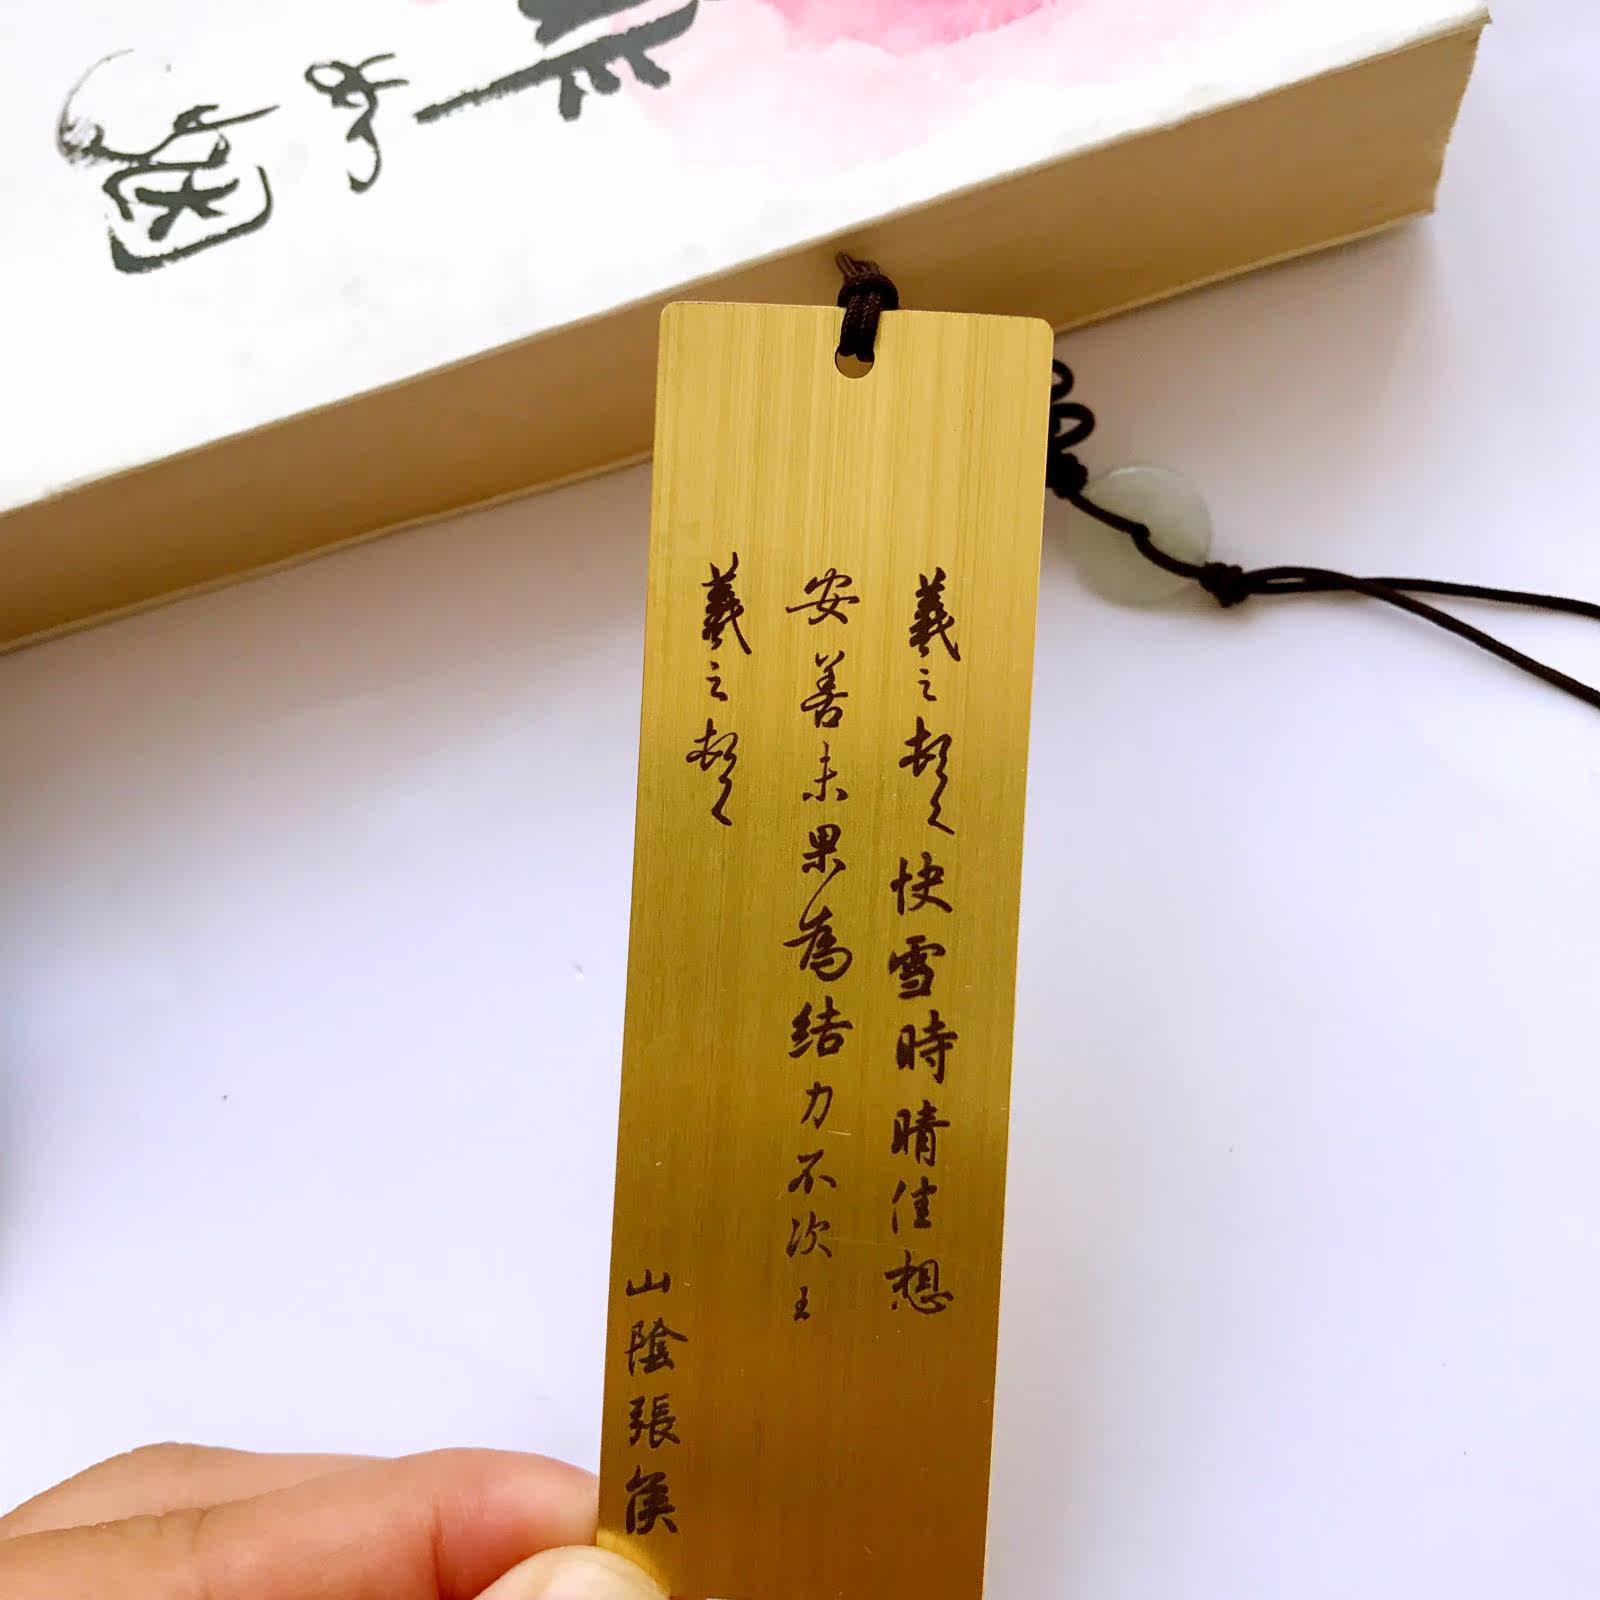 羲之頓首快雪時晴佳想
安善未果為結力不次王
羲之頓首
山陰張侯
如烟